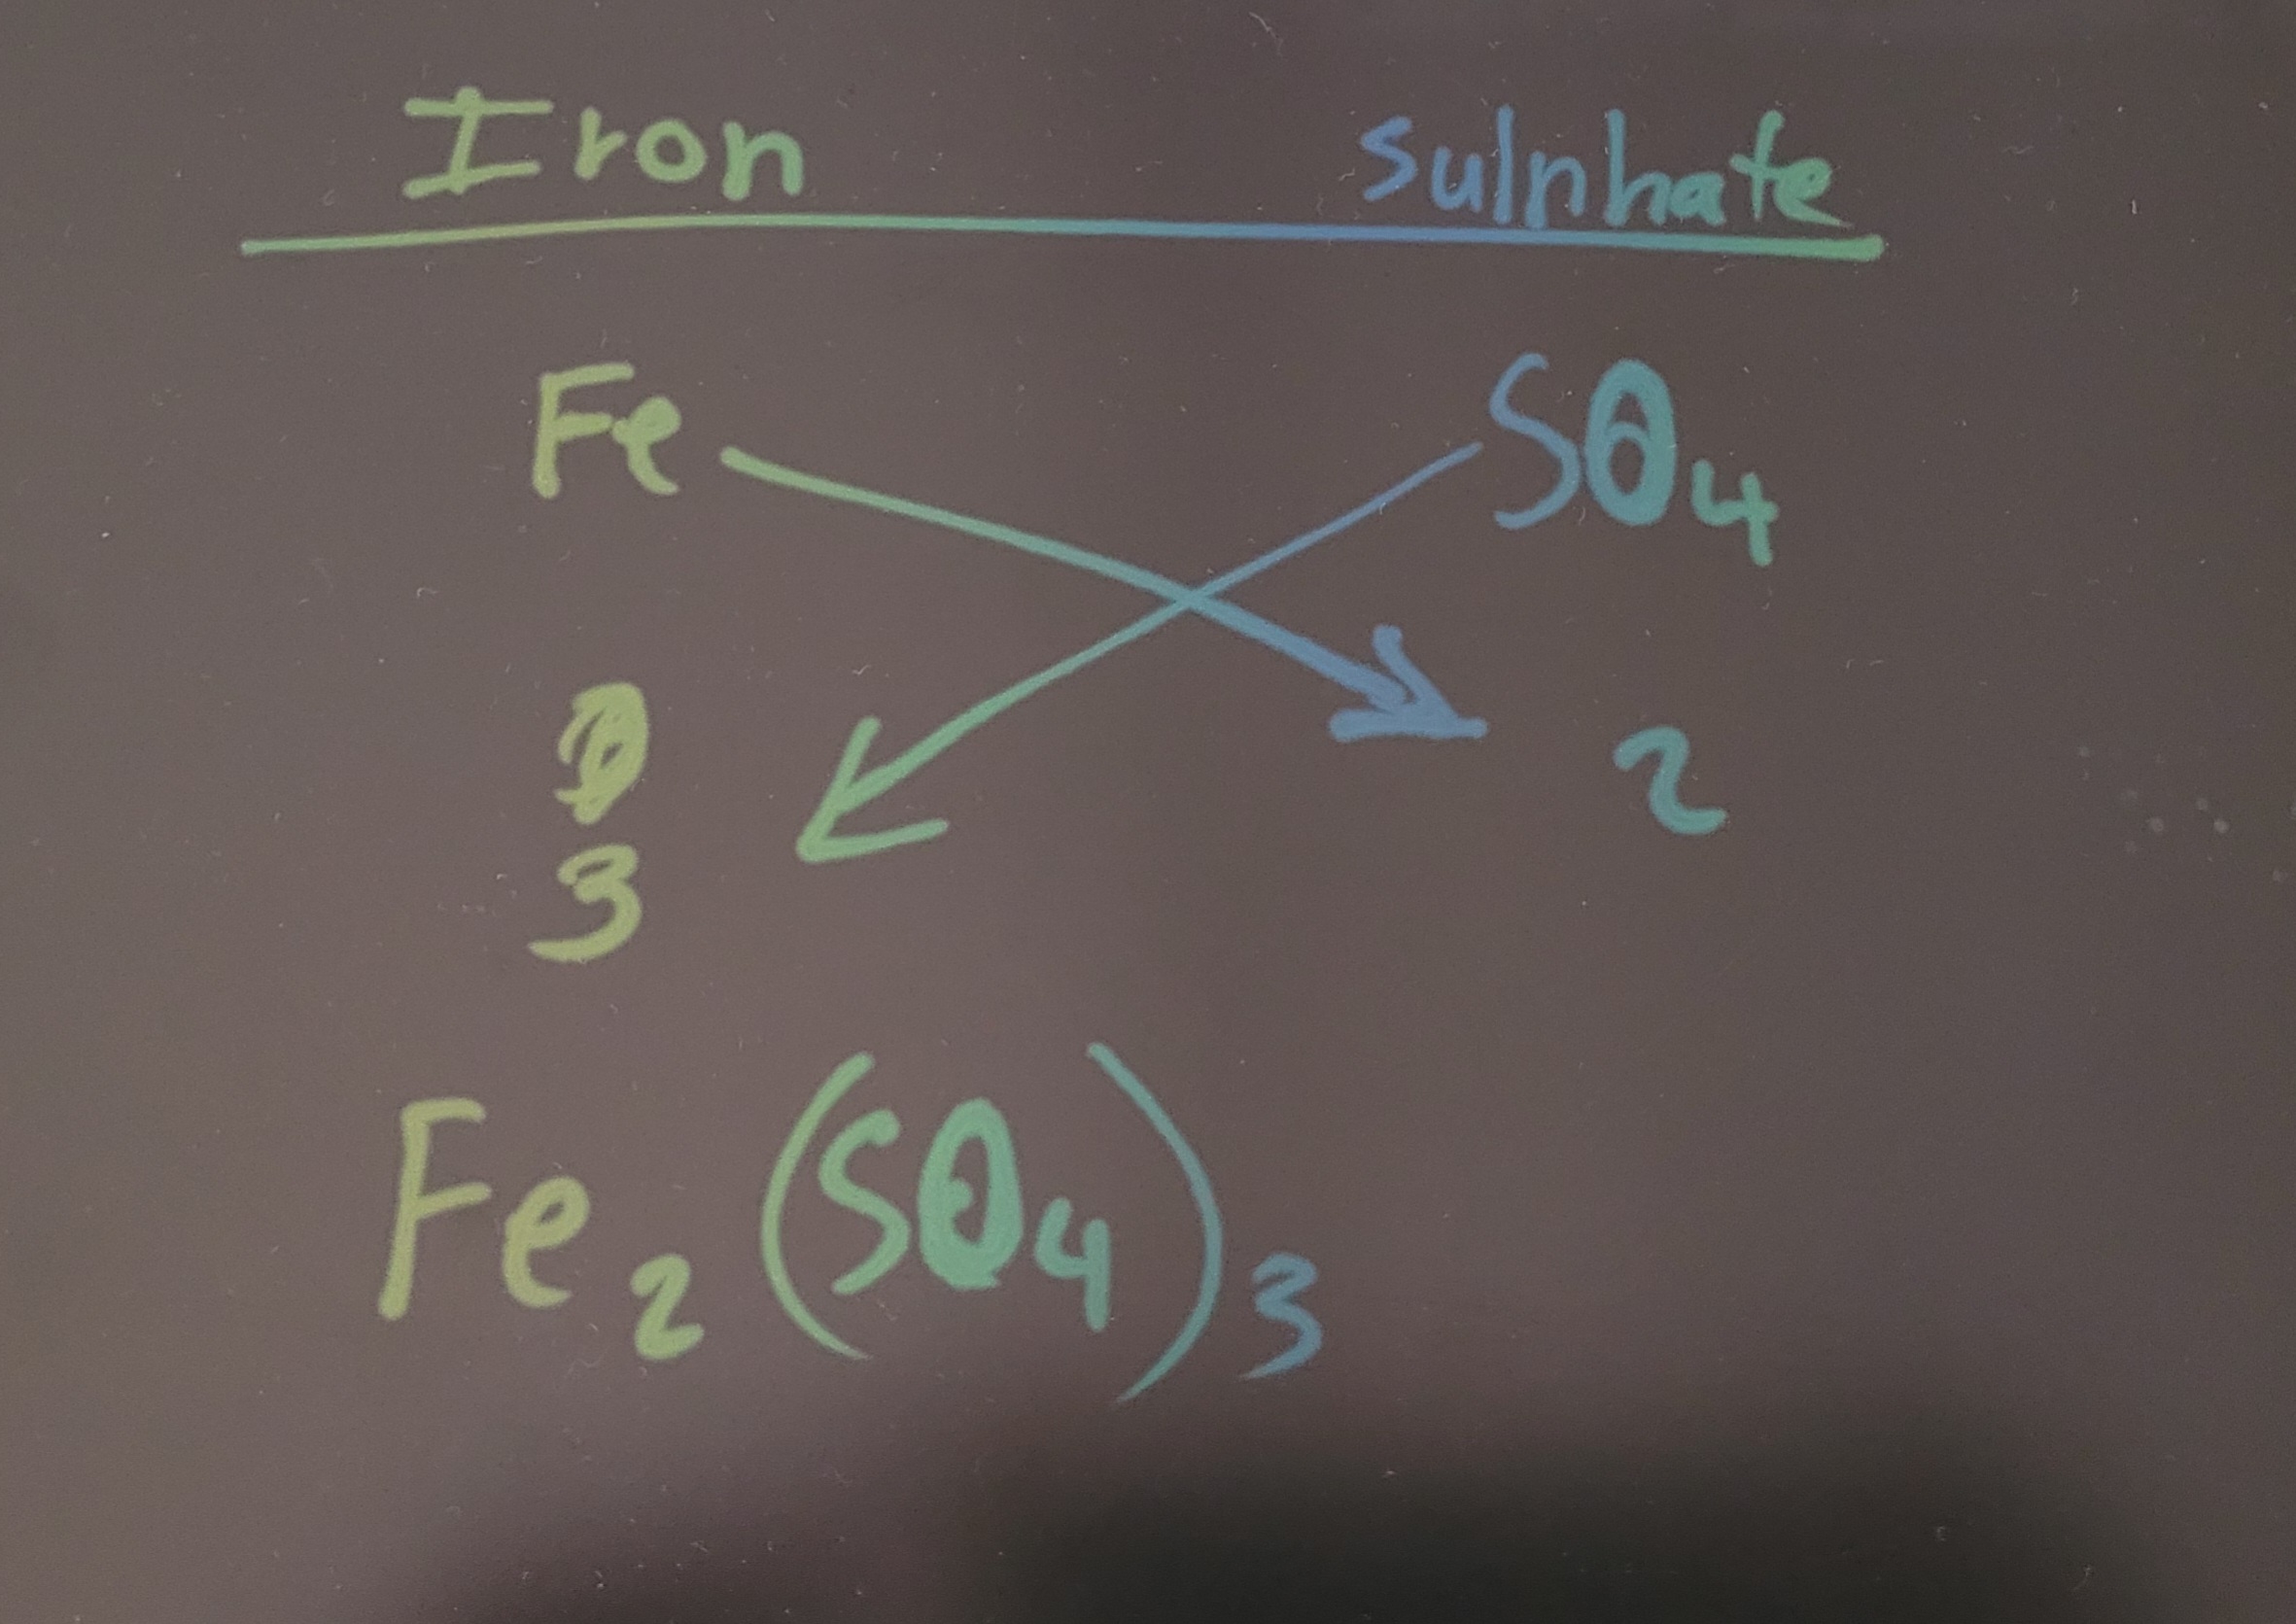 Iron sulphate
Fe SO₄
2
3
Fe₂(SO₄)₃